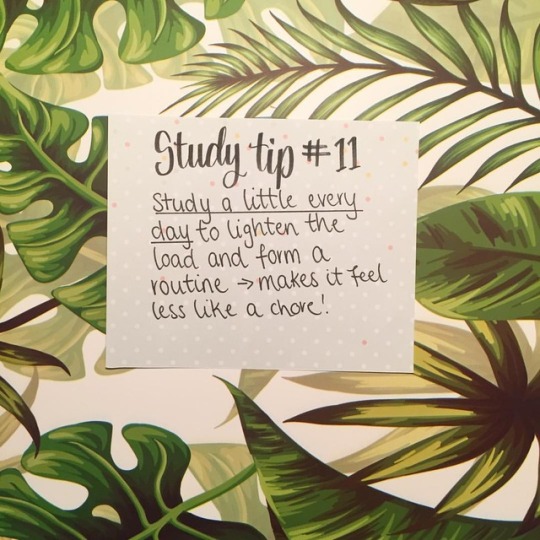 Study tip #11
Study a little every
day to lighten the
load and form a
routine → makes it feel
less like a chore!